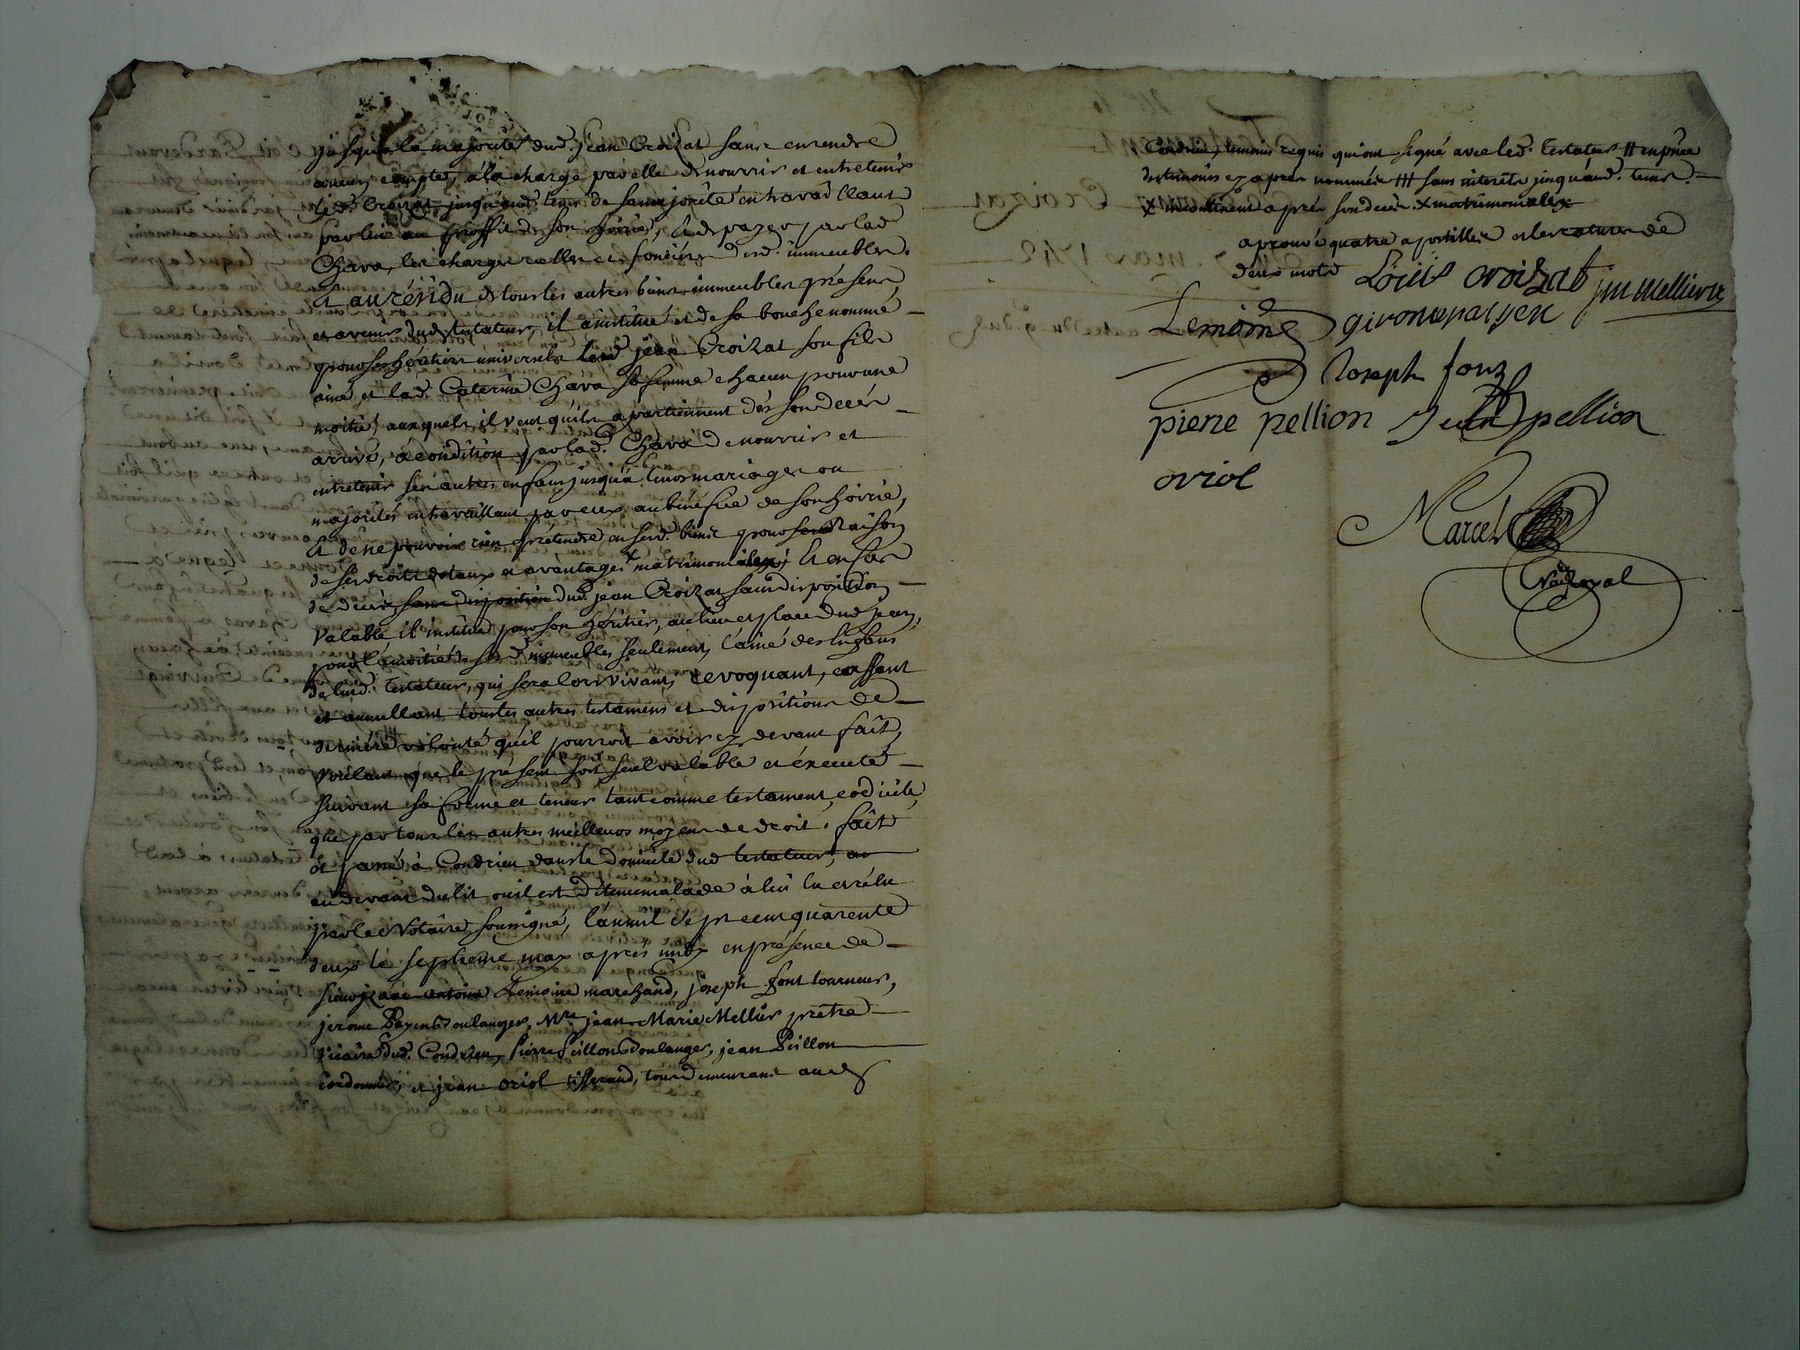 jusqu'a la majorité dud. jean Croizat sans en rendre
aucun compte, a la charge par elle de nourrir et entretenir
led. Croizat jusqu'aud. tems de sa majorité en travaillant
par lui au proffit de son hoirie, & de payer par lad.
Chava, les charges reelles et foncieres desd. immeubles.
Et au résidu de tous les autres biens immeubles présens
et avenir dud. testateur, il a institué et de sa bouche nommé
pour ses héritiers universels led. jean Croizat son fils
ainé, et lad. Caterine Chava sa femme chacun pour une
moitié, auxquels il veut qu'ils apartiennent dès son decés
arrivé, a condition par lad. Chava de nourrir et
entretenir ses autres enfans jusqu'à leurs mariages ou
majorités en travaillant par eux au bénéfice de son hoirie,
Et de ne pouvoir rien prétendre en sesd. biens pour raison
de ses droits dotaux et avantages matrimoniaux, Et en cas
de decés dud. jean Croizat sans disposition
valable il institue pour son héritier, au lieu et place dud. jean,
pour la moitié de sesd. immeubles seulement, l'ainé des enfans
de luid. testateur, qui sera lors vivant, revoquant, cassant
et annullant tous les autres testamens et dispositions de
derniere volonté qu'il pourroit avoir cy devant fait,
voulant que le présent soit seul valable et éxecuté
suivant sa forme et teneur tant comme testament, codicile,
que par tous les autres meilleurs moyens de droit. fait
et passé a Condrieu dans le domicile dud. testateur,
au devant du lit ou il est détenu malade a lui lu et rélu
par le Notaire soussigné, l'an mil sept cent quarente
deux le septieme may après midy en présence de
sieur Lemoine marchand, joseph font tourneur,
jerome Payen Boulanger, Mre. jean Marie Mellier prêtre
vicaire dud. Condrieu, Pierre Peillon Boulanger, jean Peillon
cordonnier, et jean oriol tisserand, tous demeurant aud.
Condrieu, temoins requis qui ont signé avec led. testateur # en pñce
des temoins cy apres nommés ### sans interets jusqu'aud. tems.
x incontinent après son decés. x matrimoniales
aprouvé quatre apostilles et les ratures de
deux mots Loüis croizat jm mellier
Lemoine gironeme payen
Joseph fonz
pierre pellion Jean pellion
oriol
Marcel